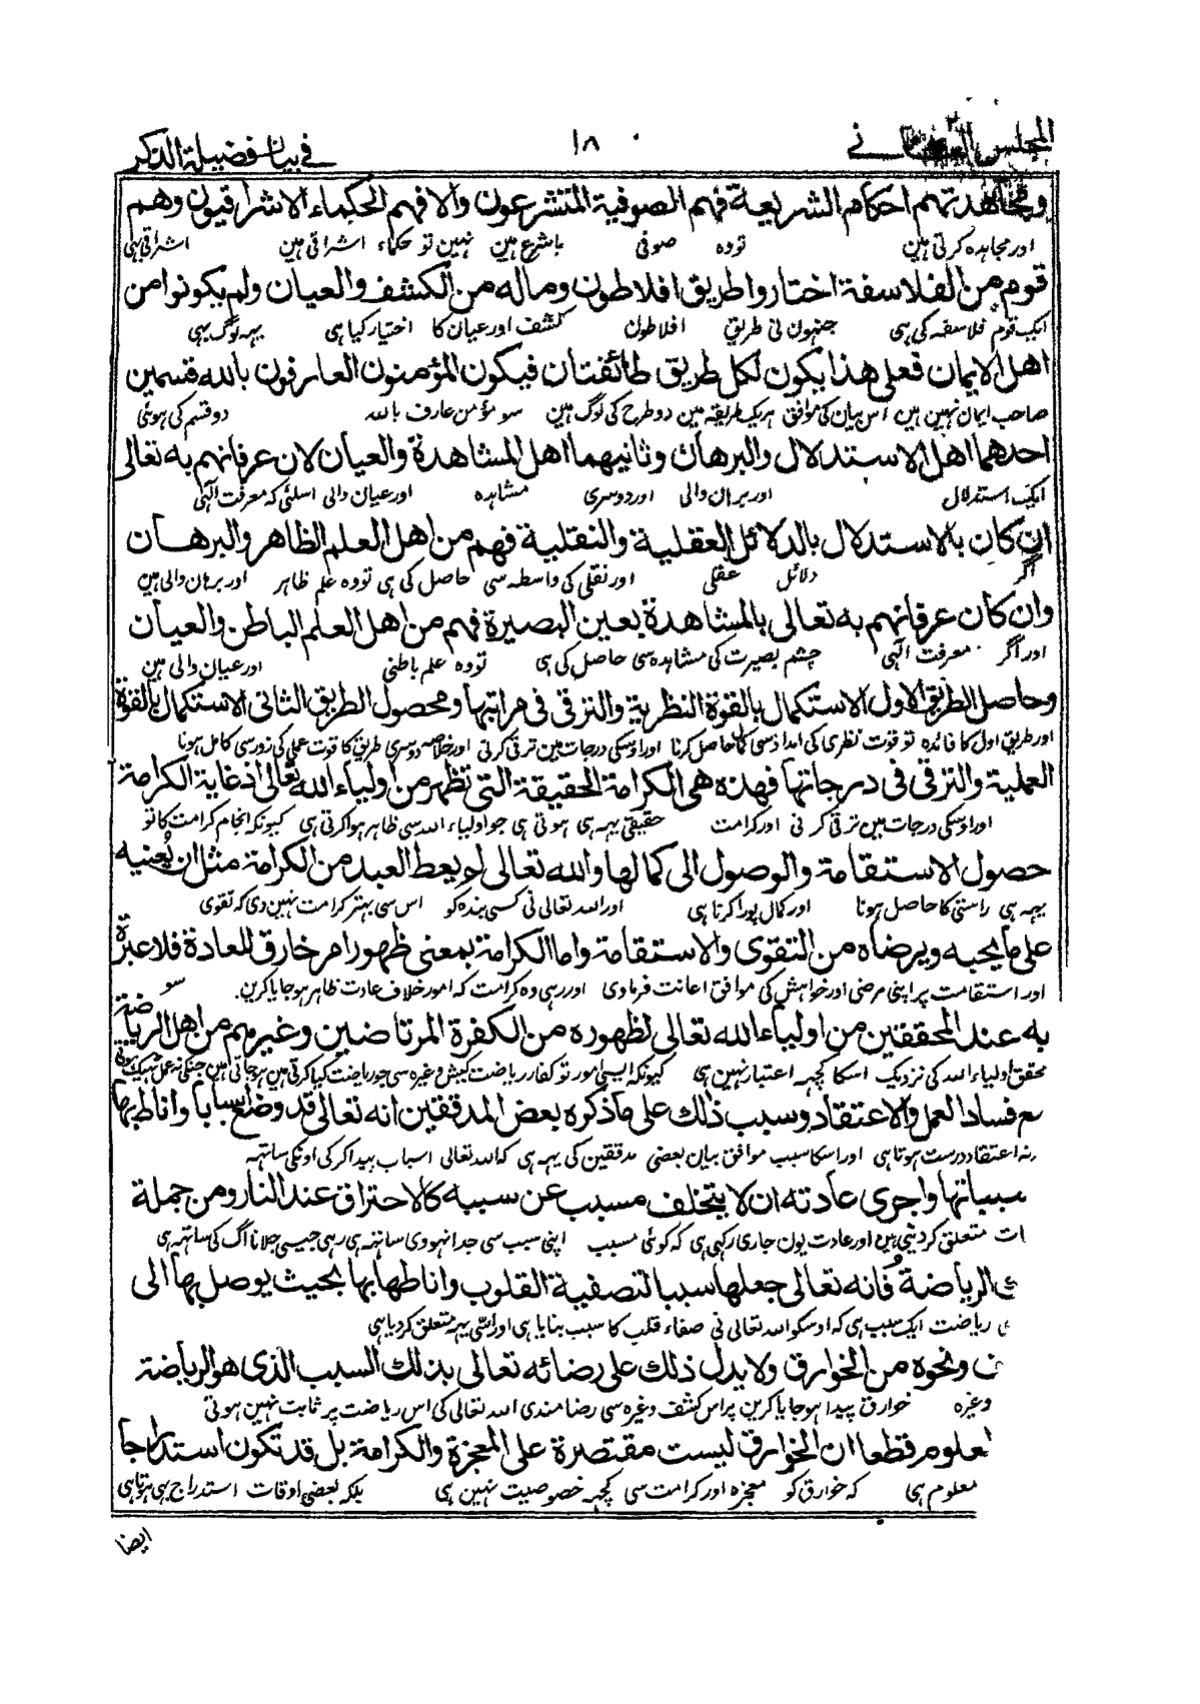 المجلس الثانى في ١٨ في بيان فضيلة الذكر
ومجاهدتهم احكام الشريعة فهم الصوفية المتشرعون والا فهم الحكماء الاشراقيون وهم
اور مجاہدہ کرتی ہین تو وہ صوفی باشرع ہین نہین تو حکماء اشراقی ہین اشراقی بہی
قوم من الفلاسفة اختاروا طريق افلاطون وماله من الكشف والعيان ولم يكونوا من
ایک قوم فلاسفہ کی ہی جنہون نی طریق افلاطون کشف اور عیان کا اختیار کیا ہی یہہ لوگ بہی
اهل الايمان فعلى هذا يكون لكل طريق طائفتان فيكون المؤمنون العارفون بالله قسمين
صاحب ایمان نہین ہین اس بیان کی موافق ہر یک طریقہ مین دو طرح کی لوگ ہین سو مؤمن عارف باللہ دو قسم کی ہوئی
احدهما اهل الاستدلال والبرهان وثانيهما اهل المشاهدة والعيان لان عرفانهم به تعالى
ایک استدلال اور برہان والی اور دوسری مشاہدہ اور عیان والی اسلئی کہ معرفت الٰہی
ان كان بالاستدلال بالدلائل العقلية والنقلية فهم من اهل العلم الظاهر والبرهان
اگر دلائل عقلی اور نقلی کی واسطہ سی حاصل کی ہی تو وہ علم ظاہر اور برہان والی ہین
وان كان عرفانهم به تعالى بالمشاهدة بعين البصيرة فهم من اهل العلم الباطن والعيان
اور اگر معرفت الٰہی چشم بصیرت کی مشاہدہ سی حاصل کی ہی تو وہ علم باطنی اور عیان والی ہین
وحاصل الطريق الاول الاستكمال بالقوة النظرية والترقى فى مراتبها ومحصول الطريق الثانى الاستكمال بالقوة
اور طریق اول کا فائدہ تو قوت نظری کی امداد سی کمال حاصل کرنا اور اوسکی درجات مین ترقی کرنی اور خلاصہ دوسری طریق کا قوت عملی کی زور سی کامل ہونا
العملية والترقى فى درجاتها فهذه هى الكرامة الحقيقة التى تظهر من اولياء الله تعالى اذ غاية الكرامة
اور اوسکی درجات مین ترقی کرنی اور کرامت حقیقی یہہ ہی ہوتی ہی جو اولیاء اللہ سی ظاہر ہوا کرتی ہی کیونکہ انجام کرامت کا تو
حصول الاستقامة والوصول الى كمالها والله تعالى لم يعط العبد من الكرامة مثل ان يعنيه
یہہ ہی راستی کا حاصل ہونا اور کمال پورا کرنا ہی اور اللہ تعالی نی کسی بندہ کو اس سی بہتر کرامت نہین دی کہ تقوی
على ما يحبه ويرضاه من التقوى والاستقامة واما الكرامة بمعنى ظهور امر خارق للعادة فلا عبرة
اور استقامت پر اپنی مرضی اور خواہش کی موافق اعانت فرماوی اور رہی وہ کرامت کہ امور خلاف عادت ظاہر ہو جایا کرین سو
به عند المحققين من اولياء الله تعالى لظهوره من الكفرة المرتاضين وغيرهم من اهل الرياضة
محقق اولیاء اللہ کی نزدیک اسکا کچہہ اعتبار نہین ہی کیونکہ ایسی امور تو کفار ریاضت کیش وغیرہ سی جو ریاضت کیا کرتی ہین ہو جاتی ہین جنکی نہ عمل ٹہیک ہوتی
ع فساد العمل والاعتقاد وسبب ذلك على ما ذكره بعض المدققين انه تعالى قد وضع اسبابا واناط بها
نہ اعتقاد درست ہوتا ہی اور اسکا سبب موافق بیان بعضی مدققین کی یہہ ہی کہ اللہ تعالی اسباب پیدا کر کی اونکی ساتہہ
سبباتها واجرى عادته ان لا يتخلف مسبب عن سببه كالاحتراق عند النار ومن جملة
ات متعلق کر دیتی ہین اور عادت یون جاری رکہی ہی کہ کوئی مسبب اپنی سبب سی جدا نہو وی ساتہہ ہی رہی جیسی جلانا آگ کی ساتہہ ہی
الرياضة فانه تعالى جعلها سببا لتصفية القلوب واناطها بها بحيث يوصل بها الى
ریاضت ایک سبب ہی کہ اوسکو اللہ تعالی نی صفاء قلب کا سبب بنایا ہی اور اتنی یہہ متعلق کر دیا ہی
ف ونحوه من الخوارق ولا يدل ذلك على رضائه تعالى بذلك السبب الذى هو الرياضة
وغیرہ خوارق پیدا ہو جایا کرین پر اس کشف وغیرہ سی رضا مندی اللہ تعالی کی اس ریاضت پر ثابت نہین ہوتی
لعلوم قطعا ان الخوارق ليست مقتصرة على المعجزة والكرامة بل قد تكون استدراجا
معلوم ہی کہ خوارق کو معجزہ اور کرامت سی کچہہ خصوصیت نہین ہی بلکہ بعضی اوقات استدراج بہی ہوتا ہی
ایضا